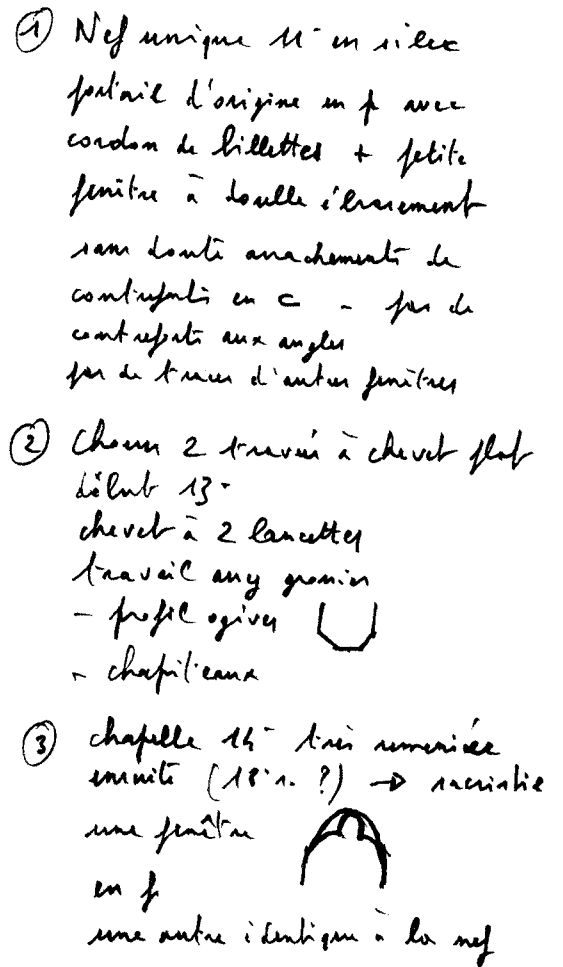 ① Nef unique 11e en silex
portail d'origine en f avec
cordon de billettes + petite
fenêtre à double ébrasement
sans doute arrachements de
contreforts en c - pas de
contreforts aux angles
pas de traces d'autres fenêtres
② Choeur 2 travées à chevet plat
début 13e
chevet à 2 lancettes
travail assez grossier
- profil ogives
- chapiteaux
③ chapelle 14e très remaniée
ensuite (18e s. ?) → sacristie
une fenêtre
en f
une autre identique à la nef